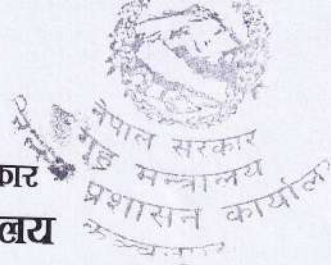 नेपाल सरकार
गृह मन्त्रालय
प्रशासन कार्यालय
कञ्चनपुर
कार
लय